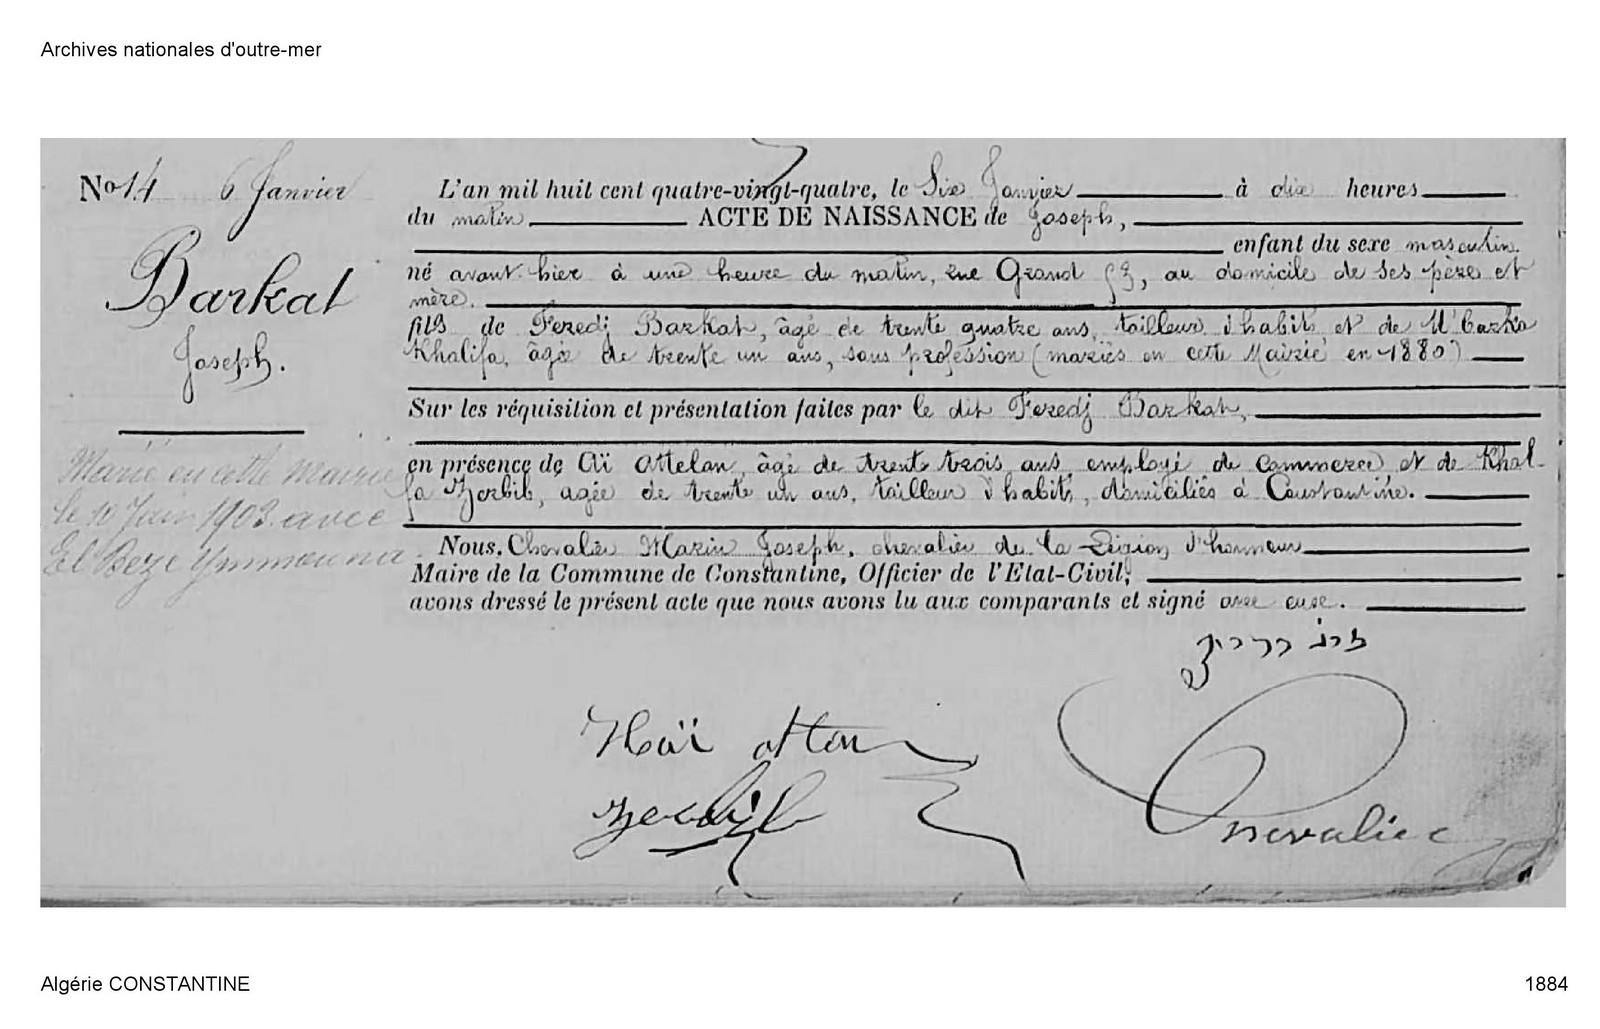 Archives nationales d'outre-mer
No 14 6 Janvier
Barkat
Joseph.
Marié en cette Mairie
le 10 Juin 1903 avec
El Beze Ymmouna
L'an mil huit cent quatre-vingt-quatre, le Six Janvier à dix heures
du matin ACTE DE NAISSANCE de Joseph,
enfant du sexe masculin
né avant hier à une heure du matin, rue Grand 53, au domicile de ses père et
mère.
fils de Feredj Barkat, âgé de trente quatre ans, tailleur d'habits et de M'Barka
Khalifa, âgée de trente un ans, sans profession (mariés en cette Mairie en 1880)
Sur les réquisition et présentation faites par le dit Feredj Barkat,
en présence de Aï Attelan, âgé de trente trois ans employé de commerce et de Khal-
fa Zerbib, agée de trente un ans, tailleur d'habits, domiciliés à Constantine.
Nous, Chevalier Marin Joseph, chevalier de la Légion d'honneur
Maire de la Commune de Constantine, Officier de l'Etat-Civil;
avons dressé le présent acte que nous avons lu aux comparants et signé avec eux.
Haï
Zerbib
Chevalier
Algérie CONSTANTINE
1884